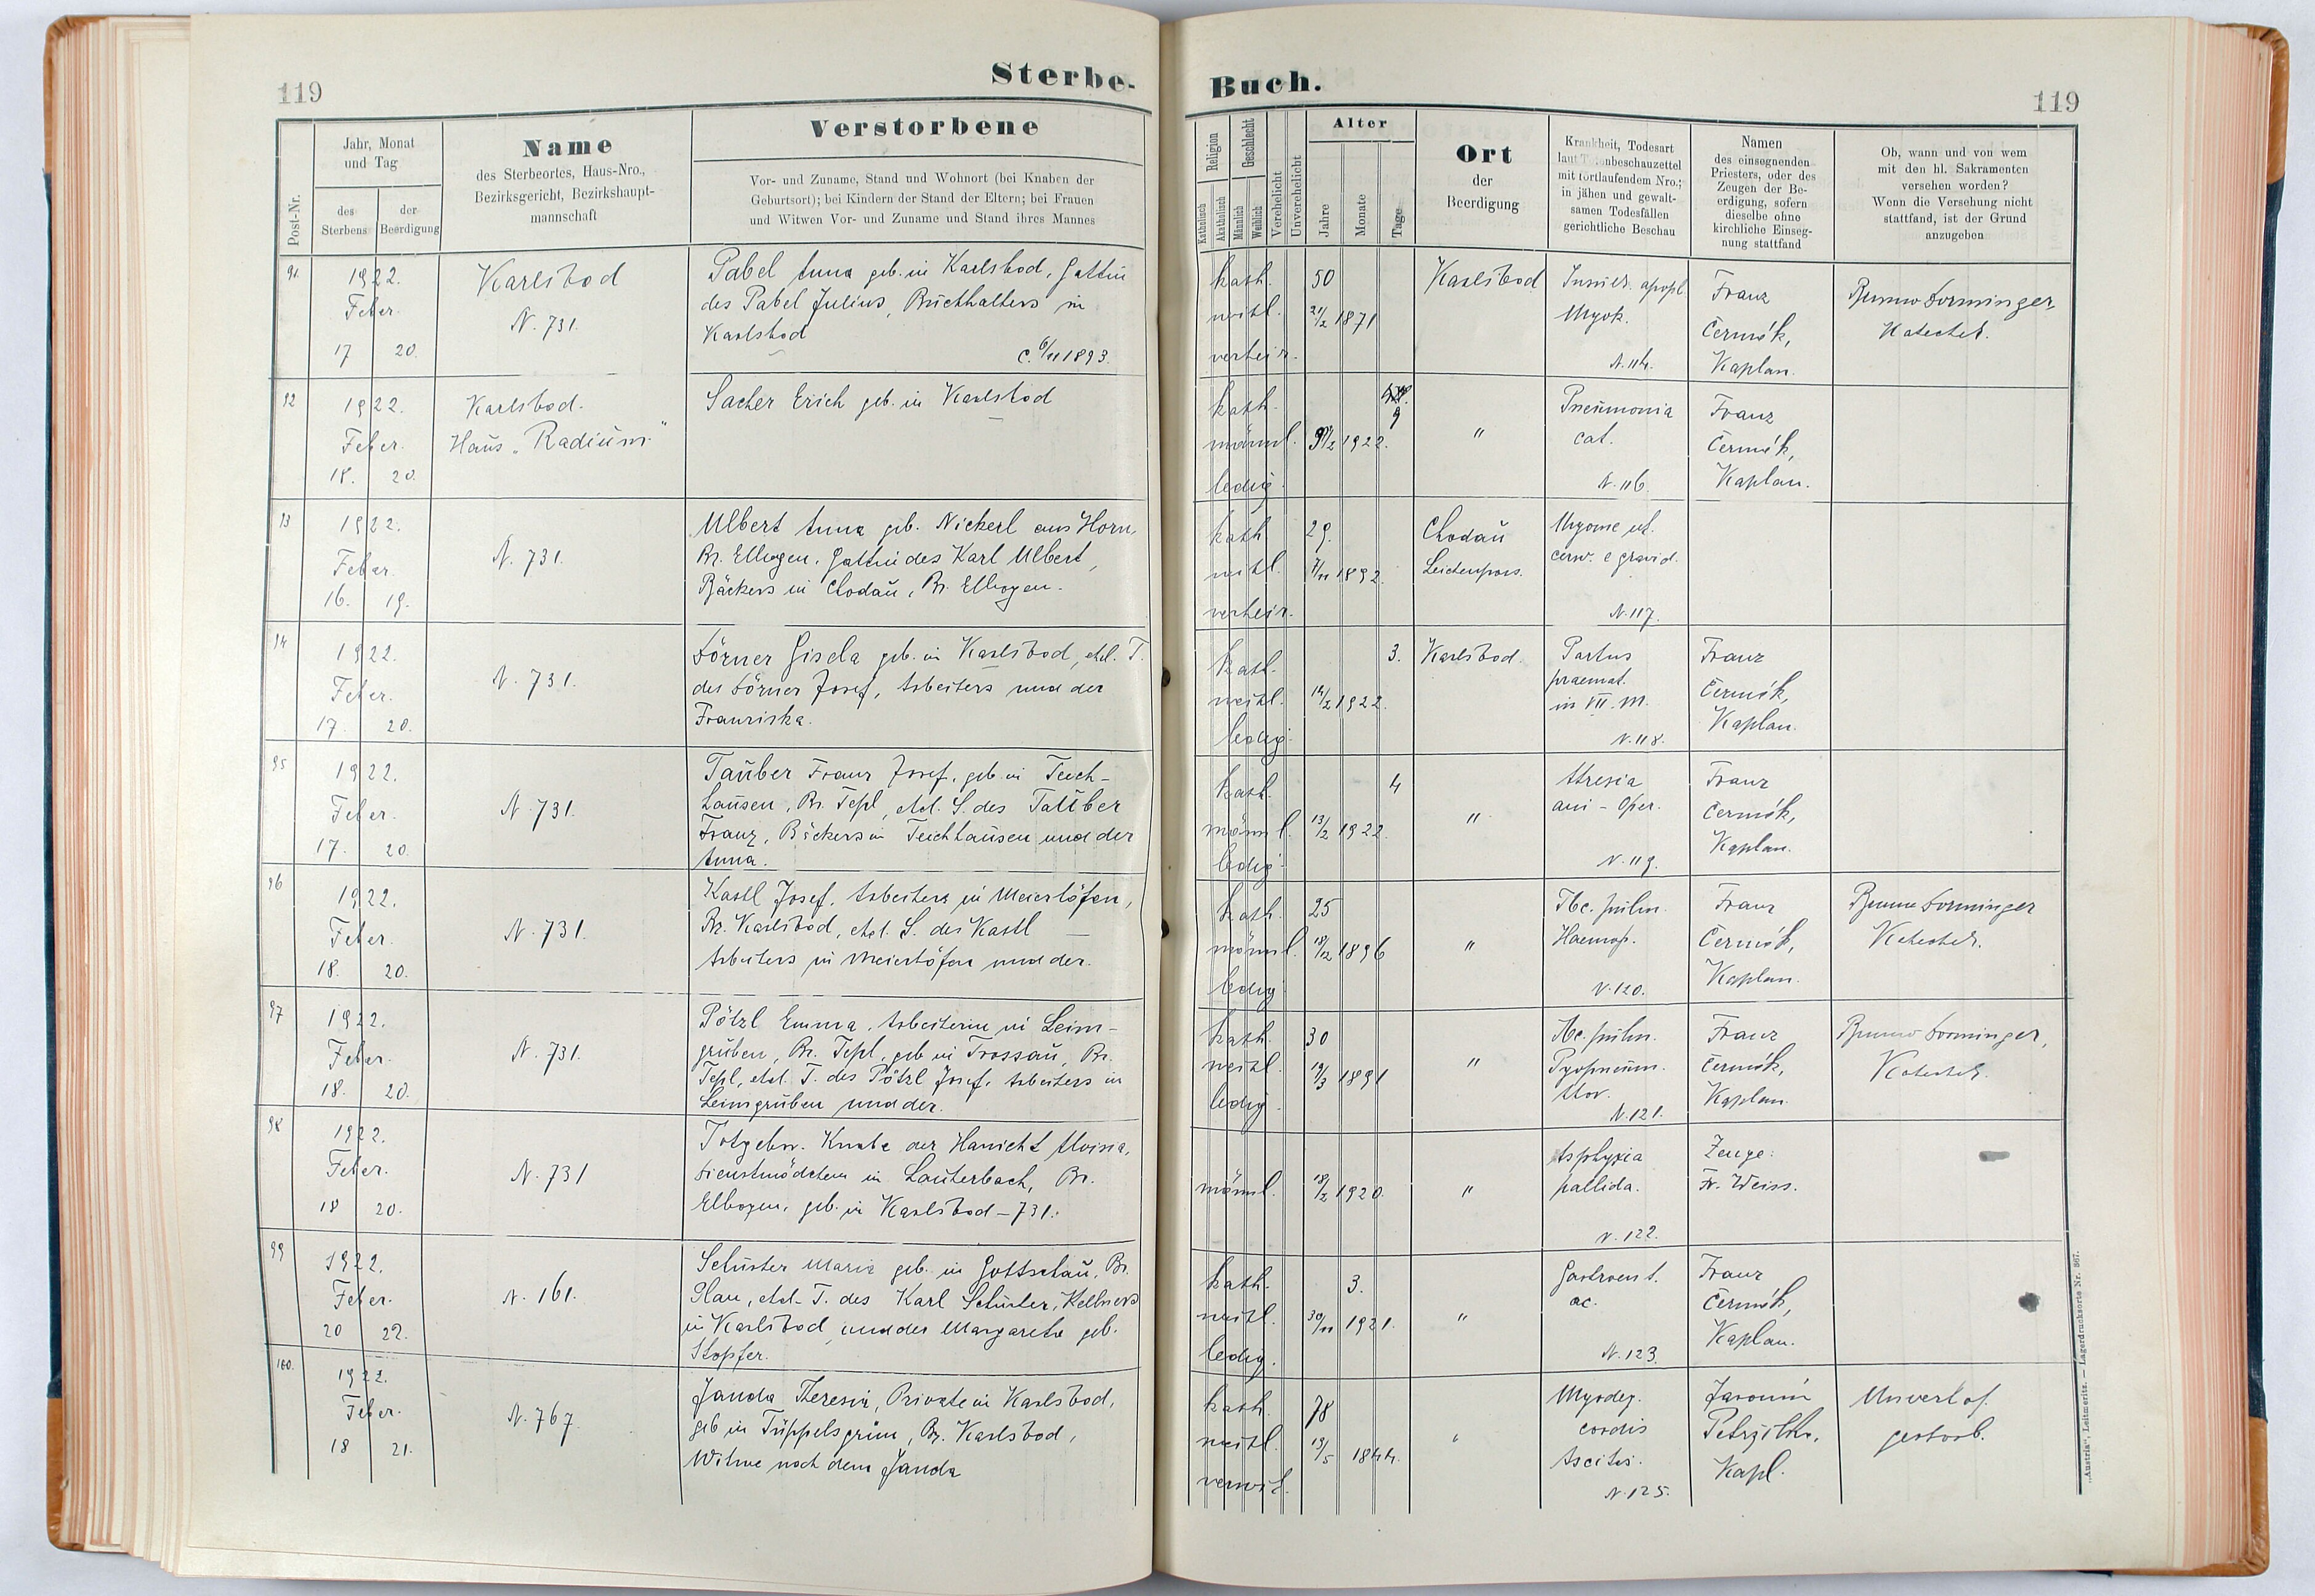 119
Sterbe-
Post-Nr.
Jahr, Monat
und Tag
des
Sterbens
der
Beerdigung
Name
des Sterbeortes, Haus-Nro.,
Bezirksgericht, Bezirkshaupt-
mannschaft
Verstorbene
Vor- und Zuname, Stand und Wohnort (bei Knaben der
Geburtsort); bei Kindern der Stand der Eltern; bei Frauen
und Witwen Vor- und Zuname und Stand ihres Mannes
91
1922.
Feber.
17 20.
Karlsbad
N. 731.
Pabel Anna geb. in Karlsbad, Gattin
des Pabel Julius, Buchhalters in
Karlsbad
C. 6/11 1893.
92
1922.
Feber.
18. 20.
Karlsbad.
Haus „Radium“
Sacher Erich geb. in Karlsbad
93
1922.
Feber.
16. 19.
N. 731.
Ulbert Anna geb. Nickerl aus Horn,
Bz. Elbogen, Gattin des Karl Ulbert,
Bäckers in Chodau, Bz. Elbogen.
94
1922.
Feber.
17. 20.
N. 731.
Dörner Gisela geb. in Karlsbad, ehel. T.
des Dörner Josef, Arbeiters und der
Franziska.
95
1922.
Feber.
17. 20.
N. 731.
Tauber Franz Josef, geb. in Teich-
hausen, Bz. Tepl, ehel. S. des Tauber
Franz, Bäckers in Teichhausen und der
Anna.
96
1922.
Feber.
18. 20.
N. 731.
Kastl Josef, Arbeiters in Meierhöfen,
Bz. Karlsbad, ehel. S. des Kastl —
Arbeiters in Meierhöfen und der.
97
1922.
Feber.
18. 20.
N. 731.
Pötzl Emma, Arbeiterin in Leim-
gruben, Bz. Tepl, geb. in Trossau, Bz.
Tepl, ehel. T. des Pötzl Josef, Arbeiters in
Leimgruben und der.
98
1922.
Feber.
18 20.
N. 731
Totgebor. Knabe der Hanicht Aloisia,
Dienstmädchen in Lauterbach, Bz.
Elbogen, geb. in Karlsbad – 731.
99
1922.
Feber.
20 22.
N. 161.
Schuster Maria geb. in Gottschau, Bz.
Plan, ehel. T. des Karl Schuster, Kellners
in Karlsbad und der Margarethe geb.
Stopfer.
100.
1922.
Feber.
18 21.
N. 767.
Janda Theresia, Private in Karlsbad,
geb. in Tüppelsgrün, Bz. Karlsbad,
Witwe nach dem Janda
Buch.
119
Religion
Katholisch
Akatholisch
Geschlecht
Männlich
Weiblich
Verehelicht
Unverehelicht
Alter
Jahre
Monate
Tage
Ort
der
Beerdigung
Krankheit, Todesart
laut Totenbeschauzettel
mit fortlaufendem Nro.;
in jähen und gewalt-
samen Todesfällen
gerichtliche Beschau
Namen
des einsegnenden
Priesters, oder des
Zeugen der Be-
erdigung, sofern
dieselbe ohne
kirchliche Einseg-
nung stattfand
Ob, wann und von wem
mit den hl. Sakramenten
versehen worden?
Wenn die Versehung nicht
stattfand, ist der Grund
anzugeben
kath. 50
weibl. 21/2 1871
verheir.
Karlsbad
apopl.
Myok.
N. 114.
Franz
Čermák,
Kaplan.
Bruno Sorminger,
Katechet.
kath. 9
männl. 9/2 1922.
ledig
"
Pneumonia
cat.
N. 116.
Franz
Čermák,
Kaplan.
kath 29.
weibl. 7/11 1892.
verheir.
Chodau
Leichenpass.
Myome ut.
cerv. e gravid.
N. 117.
kath. 3.
weibl. 14/2 1922.
ledig.
Karlsbad.
Partus
praemat.
in VII. M.
N. 118.
Franz
Čermák,
Kaplan.
kath. 4
männl. 13/2 1922.
ledig.
"
Atresia
ani – Oper.
N. 119.
Franz
Čermák,
Kaplan.
kath. 25
männl. 18/12 1896
ledig
"
Tbc. pulm.
Haemop.
N. 120.
Franz
Čermák,
Kaplan.
Bruno Sorminger
Katechet.
kath. 30
weibl. 19/3 1891
ledig.
"
Tbc. pulm.
Pyopneum.
thor.
N. 121.
Franz
Čermák,
Kaplan.
Bruno Sorminger,
Katechet.
männl. 18/2 1920.
"
Asphyxia
pallida.
N. 122.
Zeuge:
Fr. Weiss.
kath. 3.
weibl. 30/11 1921.
ledig.
"
Gastroent.
ac.
N. 123.
Franz
Čermák,
Kaplan.
kath. 78
weibl. 19/5 1844.
verwit.
"
Myodeg.
cordis
Ascites.
N. 125.
Jaromir
Petrzilka,
Kapl.
Unverhof.
gestorb.
„Austria“, Leitmeritz. — Lagerdrucksorte Nr. 367.